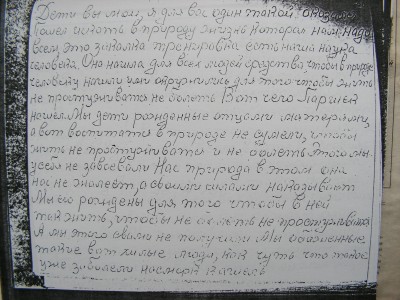 Дети вы мои, я для вас один такой оказался
Пошел искать в природу жизнь которая нам надо
всем, это закалка тренировка есть наша наука
человека. Она нашла для всех людей средства, чтобы в природе
человеку нашли чем окружились для того чтобы жить
не простуживать не болеть Вот чего Паршек
нашел. Мы дети рожденные отцами матерями,
а вот воспитать в природе не сумели, чтобы
жить не простуживать и не болеть этого мы
у себя не завоевали Нас природа в этом она
нас не жалеет, а своими силами наказывает
Мы его рождены для того чтобы в ней
так жить, чтобы не болеть не простуживаться
А мы этого сами не получили Мы
такие вот хилые люди, как чуть что такое
уже заболели насморк